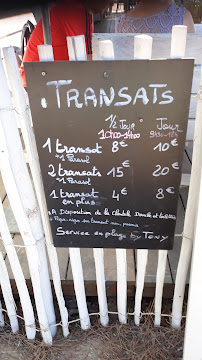 .TRANSATS
½ Jour Jour
10H00-14H00
1 transat 8€ 10€
+1 Parasol
2 transats 15€ 20€
+1 Parasol
1 transat 4€ 8€
en plus
A Disposition de la
Service en plage by Tony